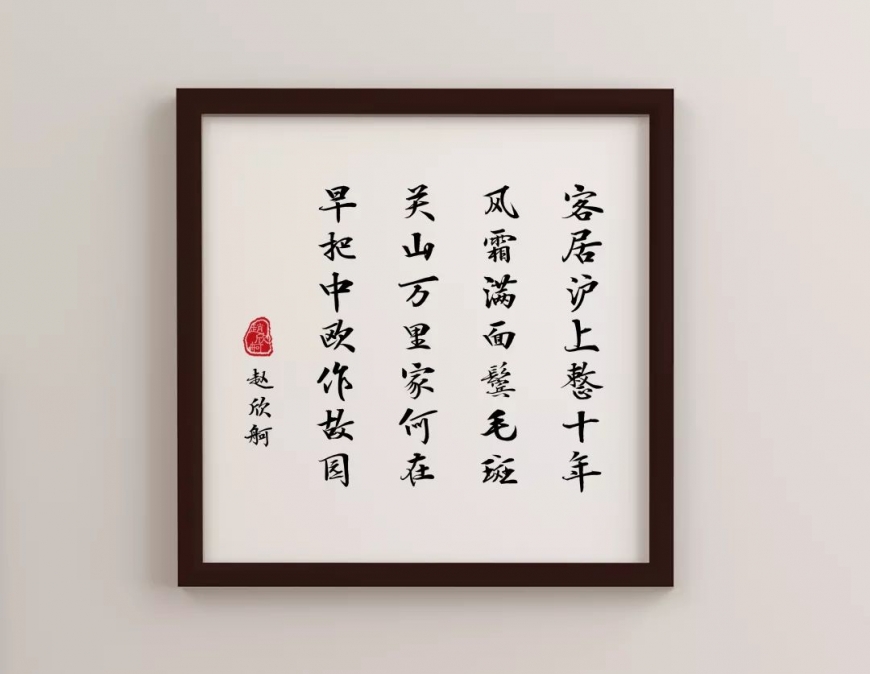 客居沪上整十年
风霜满面鬓毛斑
关山万里家何在
早把中欧作故园
赵欣舸